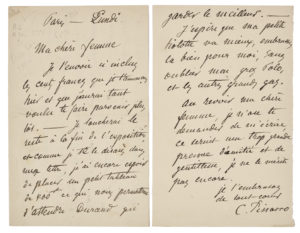 Paris — Lundi
Ma chère femme
Je t'envoie ci inclus
cent francs que je
hier et que j'aurai tant
voulu te faire parvenir plus
tôt. — Je toucherai le
reste à la fin de l'exposition
et comme je te le disais dans
ma lettre, j'ai encore espoir
de placer un petit tableau
de
d'attendre Durand qui
garder le meilleur.
J'espère que ma petite
va mieux, embrasse
la bien pour moi, sans
oublier mon gros
et les autres grands
Au revoir ma chère
femme, je n'ose te
demander de m'écrire
ce serait une trop grande
preuve d'amitié et de
gentillesse, je ne le mérite
pas encore.
je t'embrasse
de tout cœur
C. Pissarro